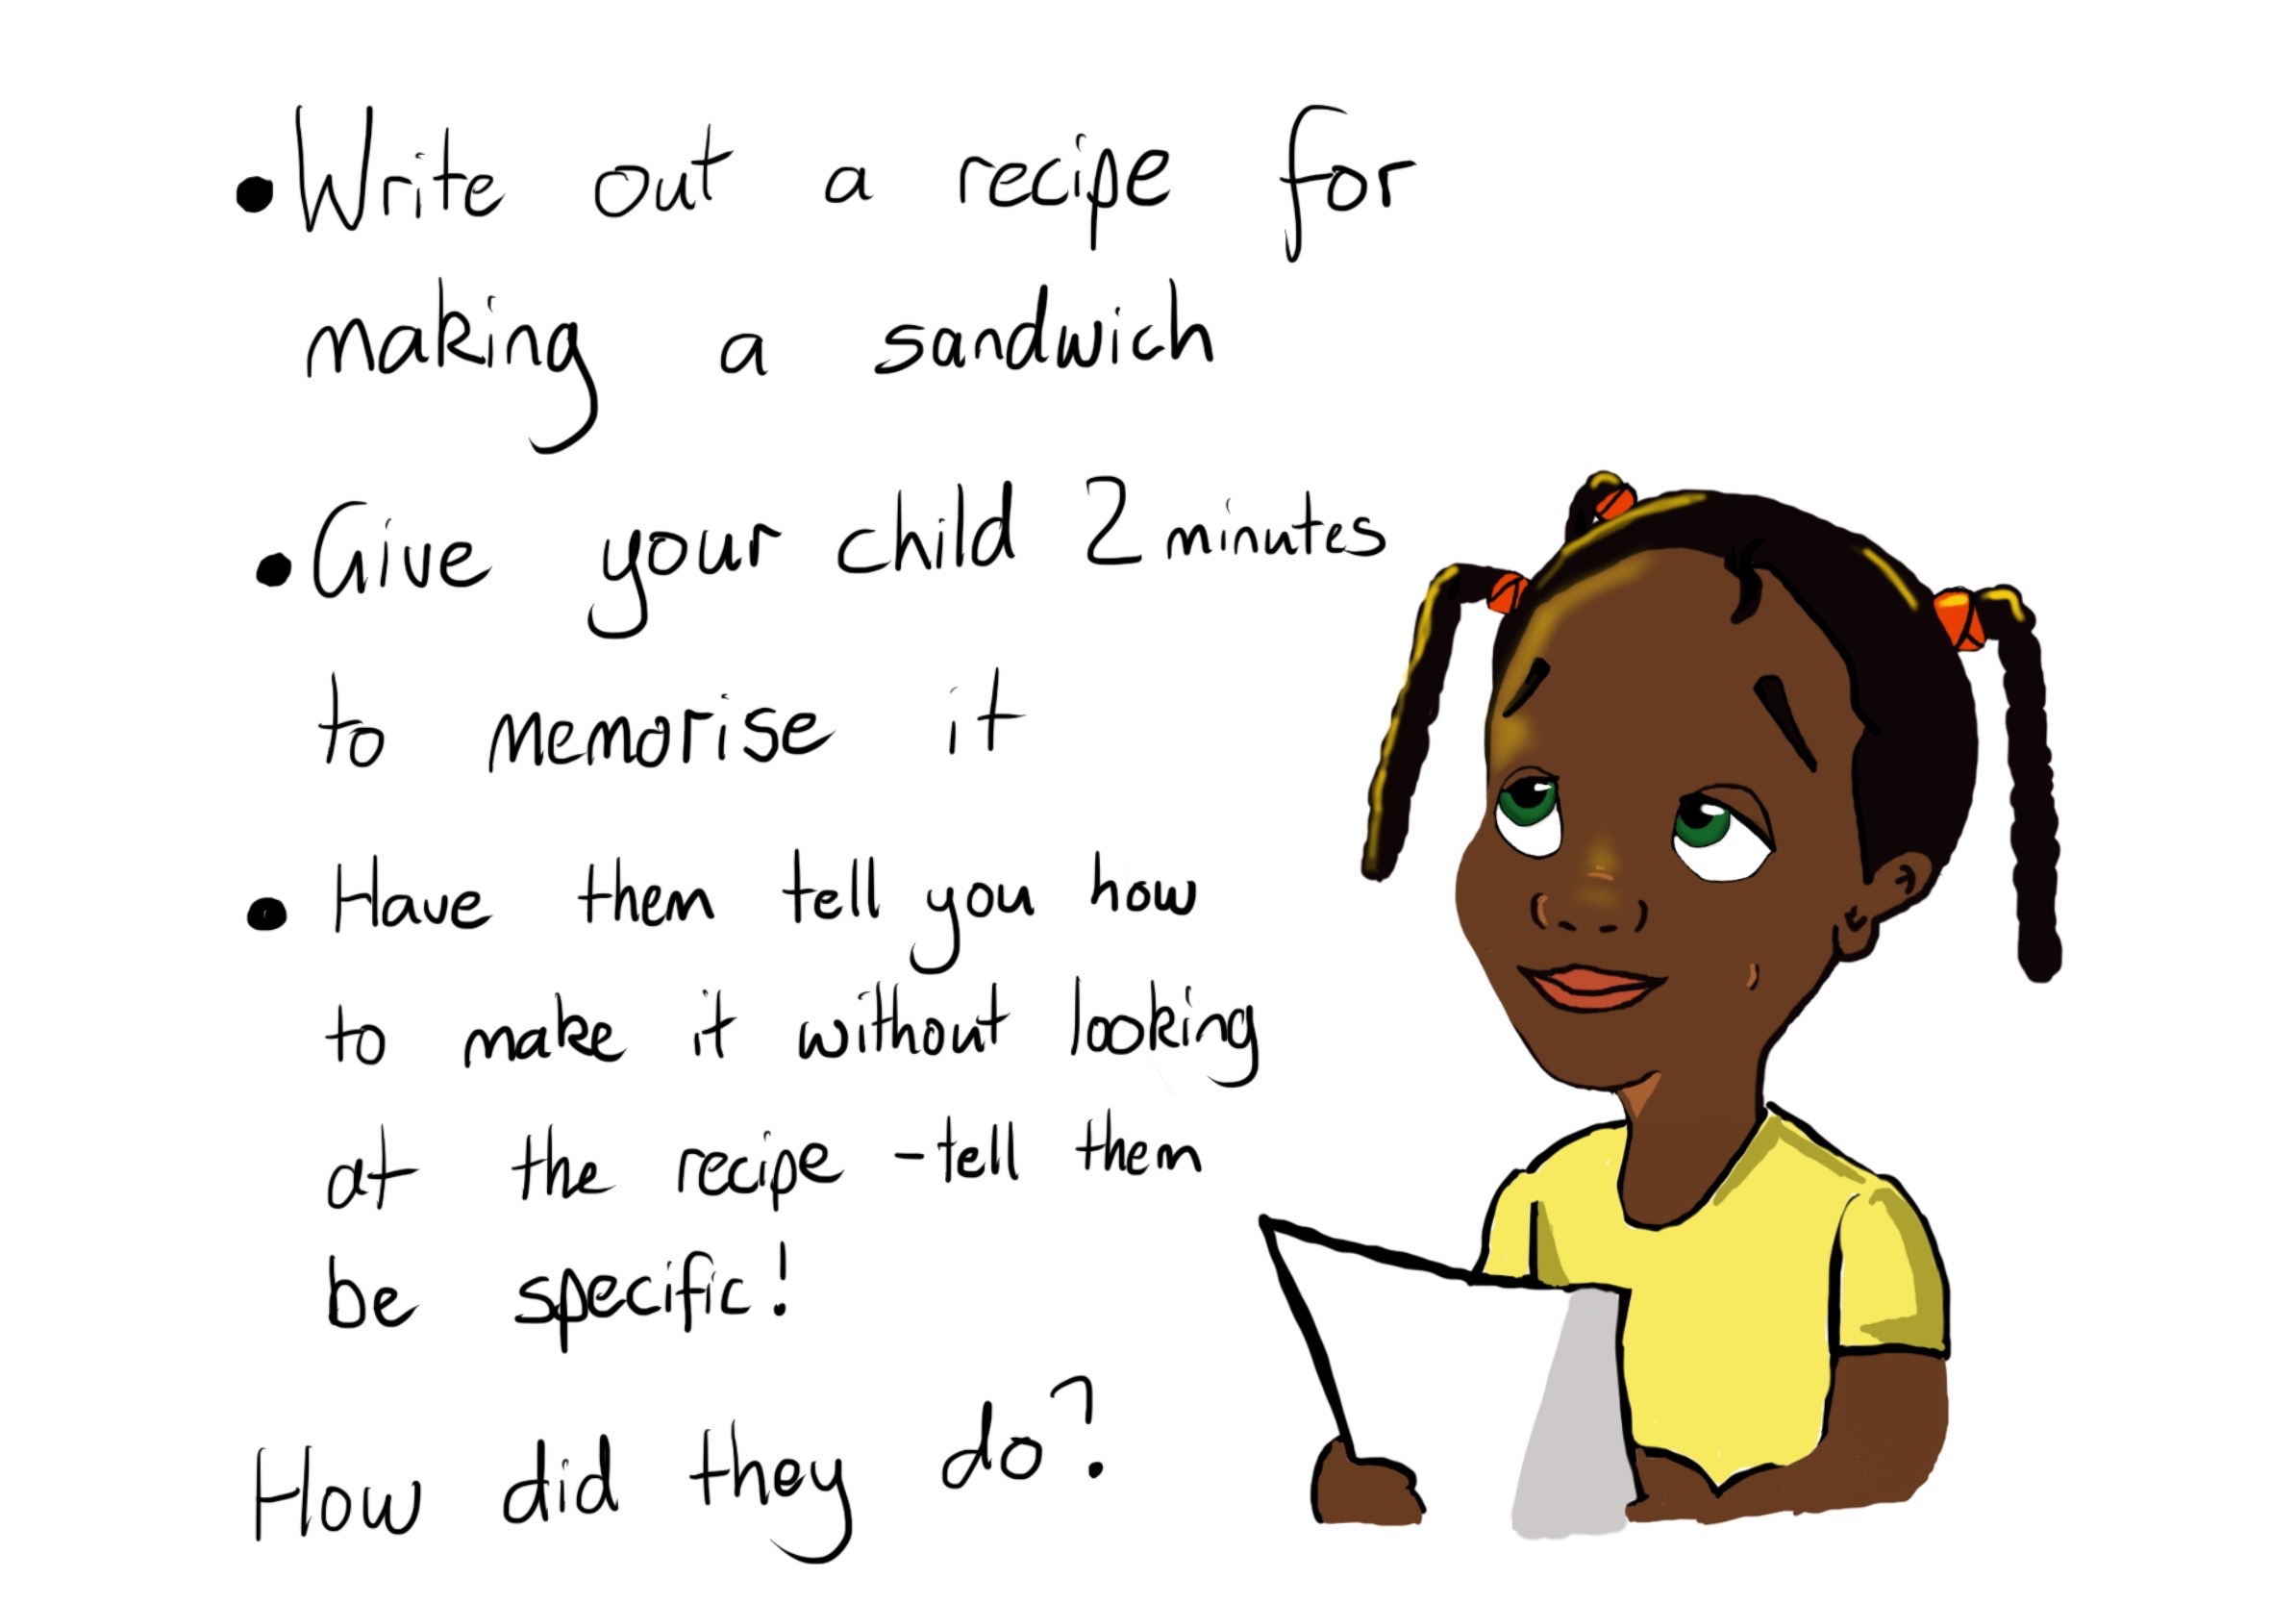 • Write out a recipe for
making a sandwich
• Give your child 2 minutes
to memorise it
• Have them tell you how
to make it without looking
at the recipe - tell them
be specific!
How did they do?